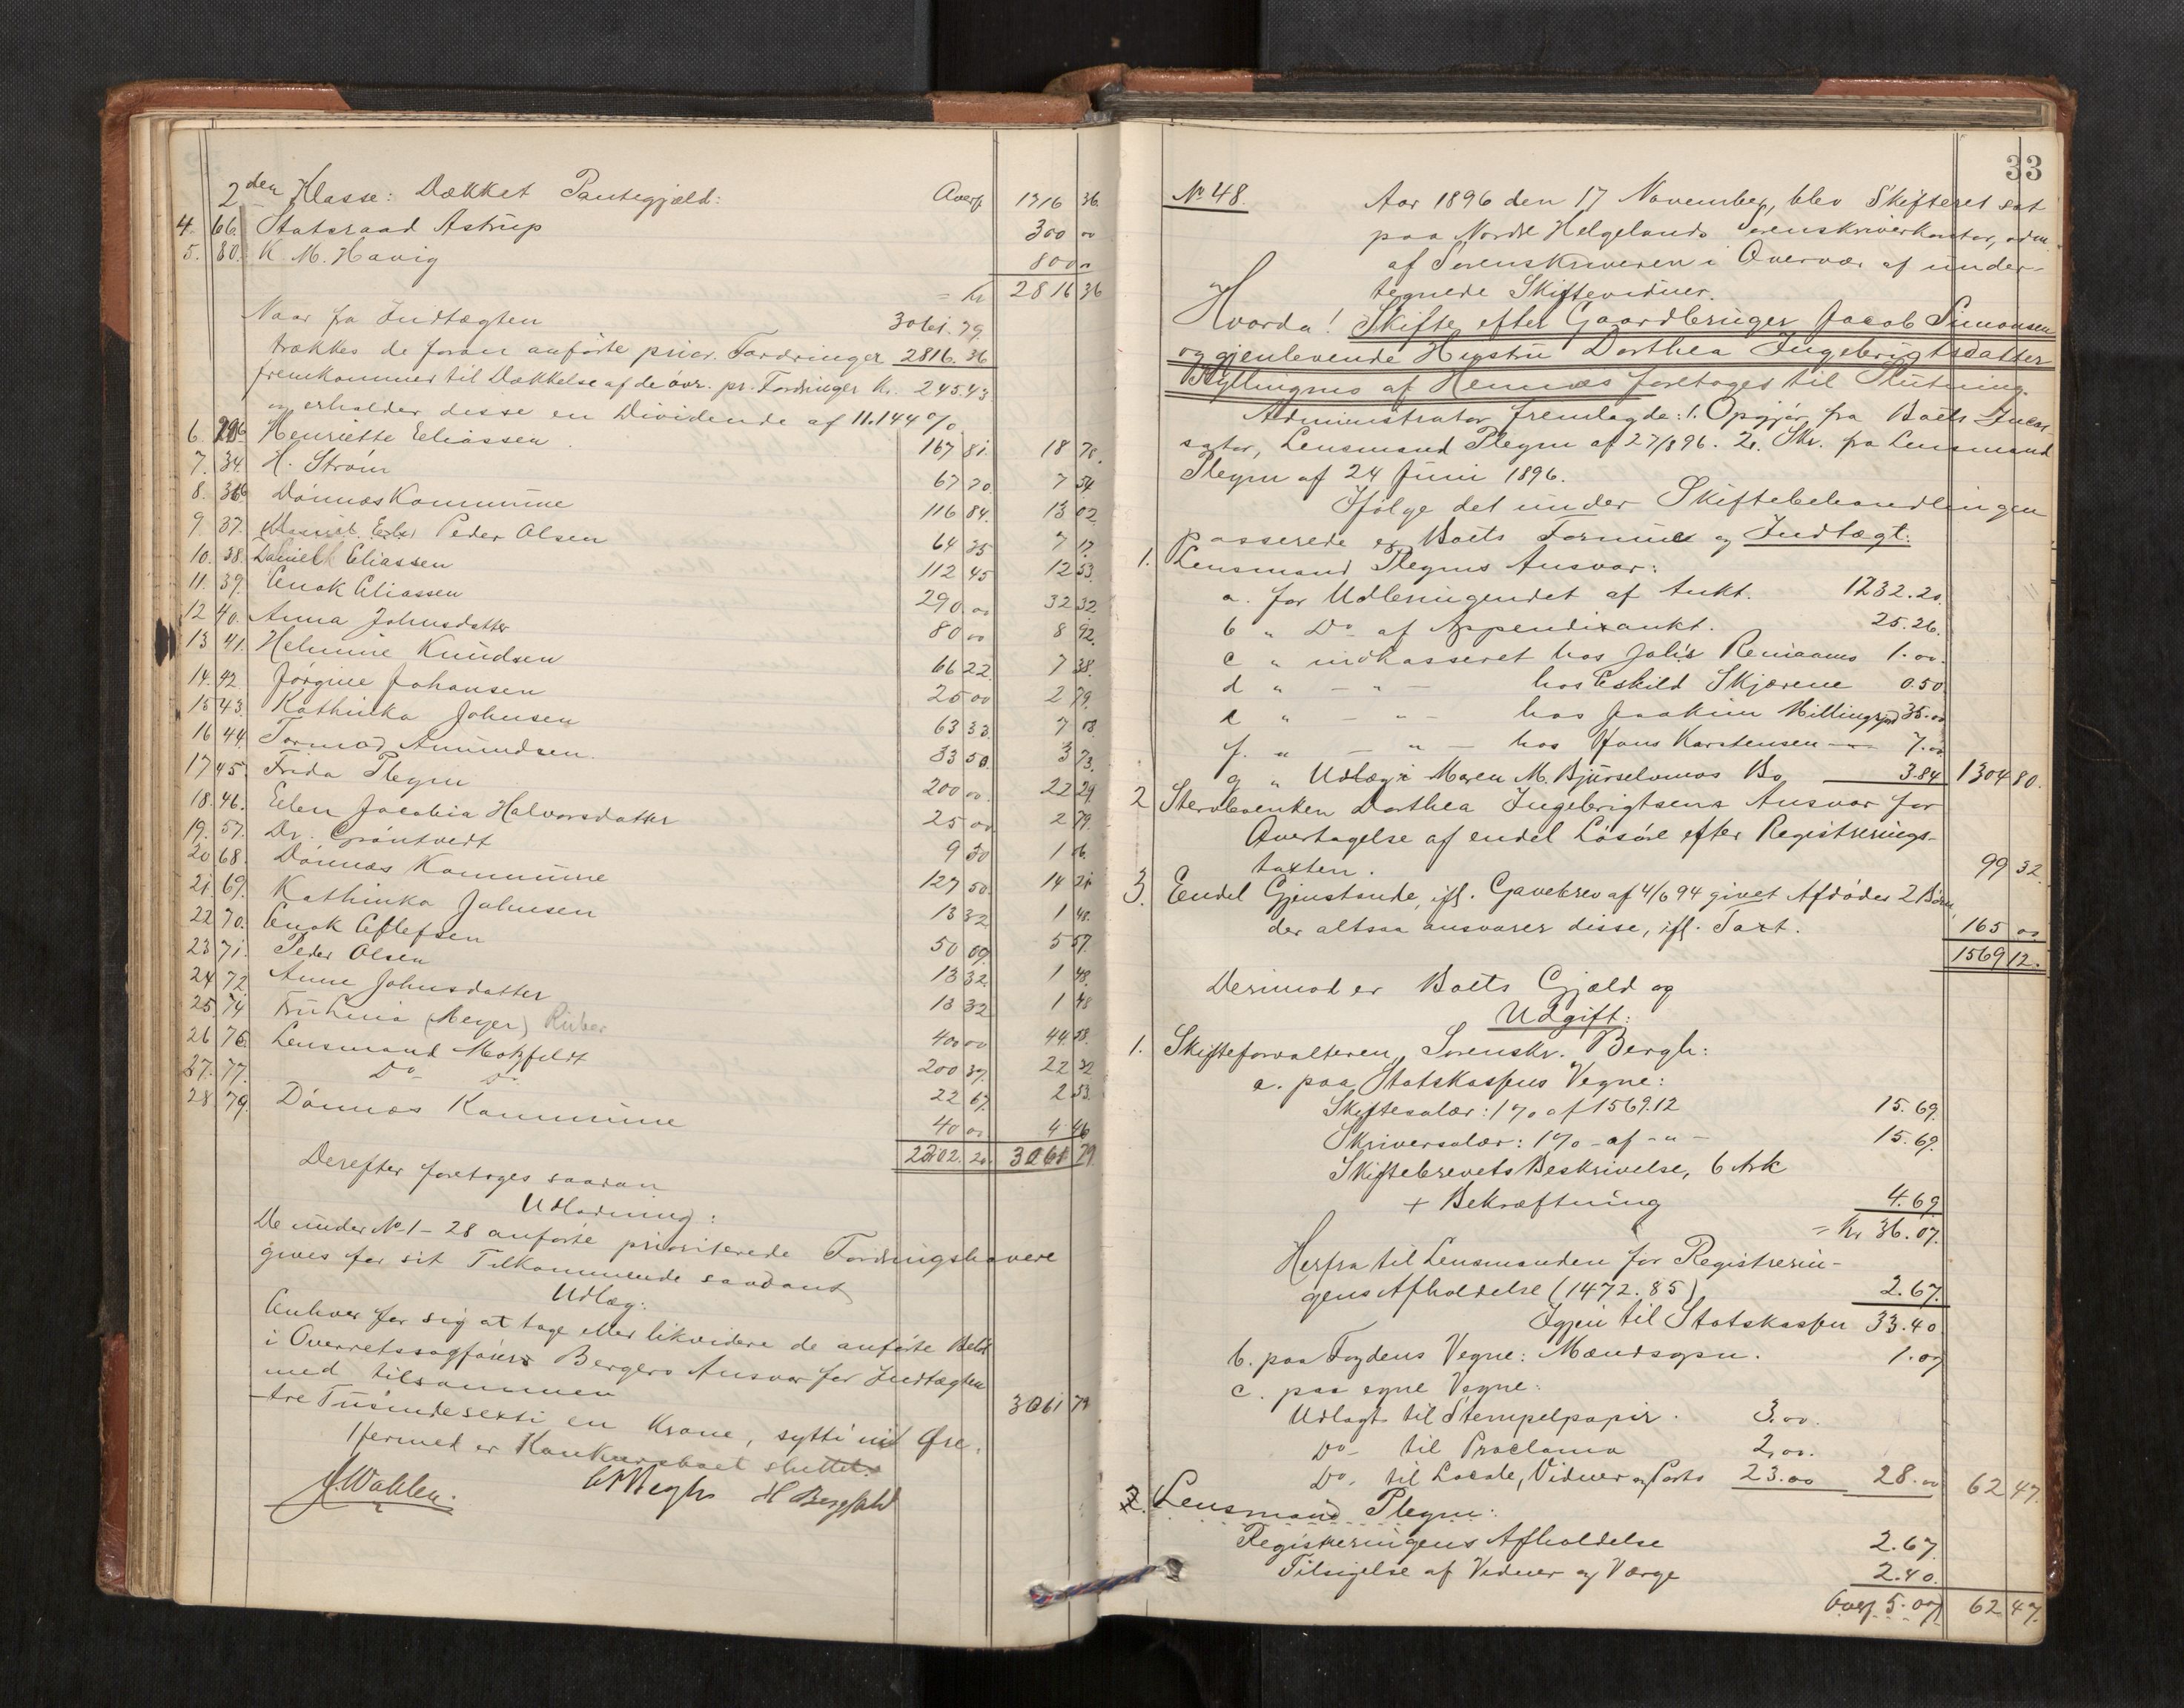 2den Klasse: Dækket Pantegjæld: Overf. 1716 36.
4. 66. Statsraad Astrup 300 00
5. 80. K. M. Havig 800 00
= Kr 2816 36
Naar fra Indtægten 3061.79.
trækkes de foran anførte prior. Fordringer 2816.36
fremkommer til Dækkelse af de øvr. pr. Fordringer Kr. 245.43
og erholder disse en Dividende af 11.144 %.
6. Henriette Eliassen 167 81. 18 70.
7. 34. H. Strøm 67 70. 7 54
8. 36 Dønnæs Kommune 116 84. 13 02
9. 37. Peder Olsen 64 35 7 17.
10. 38. Daniel Eliassen 112 45 12 53.
11. 39. Enok Eliassen 290 00 32 32
12 40. Anna Johnsdatter 80 00 8 92.
13 41. Helmine Knudsen 66 22. 7 38.
14. 42. Jørgine Johansen 25 00 2 79.
15 43. Kathinka Johnsen 63 33. 7 03.
16 44. Tormod Amundsen. 33 50. 3 73.
17 45. Frida Plegm 200 00. 22 29.
18. 46. Elen Jacobia Halvorsdatter 25 00 2 79.
19. 57. Dr. Grøntvedt 9 50 1 06.
20 68. Dønnæs Kommune 127 50. 14 21
21. 69. Kathinka Johnsen 13 32 1 48.
22 70. Enok Ellefsen 50 09. 5 57.
23 71. Peder Olsen 13 32. 1 48.
24 72. Anne Johnsdatter 13 32 1 48
25. 74. (Meyer) 400 00 44 58.
26 76. Lensmand Motzfeldt 200 37. 22 32
27. 77. Do Do 22 67. 2 53.
28 79. Dønnæs Kommune 40 00 4 46
2202. 20. 3061 79.
Derefter foretoges saadan
Udlodning:
De under No 1 - 28 anførte prioriterede Fordringshavere
gives for sit Tilkommende saadant
Udlæg:
Enhver for sig at tage eller likvidere de anførte Beløb
i Overretssagfører Bergers Ansvar for Indtægten
med tilsammen 3061 79
tre Tusindesexti en Krone, sytti ni Øre.
Hermed er Konkursboet sluttet.
J. Wahlen.
33
No 48. Aar 1896 den 17 November, blev Skifteret sat
paa Nordre Helgelands Sorenskriverkontor, adm.
af Sorenskriveren i Overvær af under-
tegnede Skiftevidner.
Hvorda! Skifte efter Gaardbruger Jacob Simonsen
og gjenlevende Hustru Dorthea Ingebrigtsdatter
af Hennæs foretoges til Slutning.
Administrator fremlagde: 1. Opgjør fra Boets Incas-
sator, Lensmand Plegm af 27/8 96. 2. Skr. fra Lensmand
Plegm af 24 Juni 1896.
Ifølge det under Skiftebehandlingen
passerede er Boets Formue og Indtægt:
1. Lensmand Plegms Ansvar:
a. for Udbringendet af Aukt. 1232.20.
b " Do af Appendixaukt. 25.26.
c " indkasseret hos Johs Remaams 1.00.
d " - " - hos Eskild Skjærene 0.50.
e " - " - hos Joakim 35.00
f. " - " - hos Hans Karstensen 7.00
g " Udlæg i Maren M. Bjurselvmos Bo 3.84 1304 80.
2 Stervboenken Dorthea Ingebrigtsens Ansvar for
Overtagelse af endel Løsøre efter Registrerings-
taxten. 99 32.
3. Endel Gjenstande, ifl. Gavebrev af 4/6 94 givet Afdødes 2 Børn,
der altsaa ansvarer disse, ifl. Taxt. 165 00
1569 12.
Derimod er Boets Gjæld og
Udgift:
1. Skifteforvalteren, Sorenskr. Bergh:
a. paa Statskassens Vegne:
Skiftesalær: 1 % af 1569.12 15.69.
Skriversalær: 1 % - af - " - 15.69.
Skiftebrevets Beskrivelse, 6 Ark
+ Bekræftning 4.69
= Kr 36.07.
Herfra til Lensmanden for Registrerin-
gens Afholdelse (1472.85) 2.67.
Igjen til Statskassen 33.40
b. paa Fogdens Vegne: 1.07
c. paa egne Vegne:
Udlagt til Stempelpapir. 3.00.
Do - til Proclama 2.00.
Do. til Locale, Vidner og Porto 23.00 28.00 62 47.
2. Lensmand Plegm:
Registreringens Afholdelse 2.67.
Tilsigelse af Vidner og Værge 2.40.
Overf. 5.07 62 47.